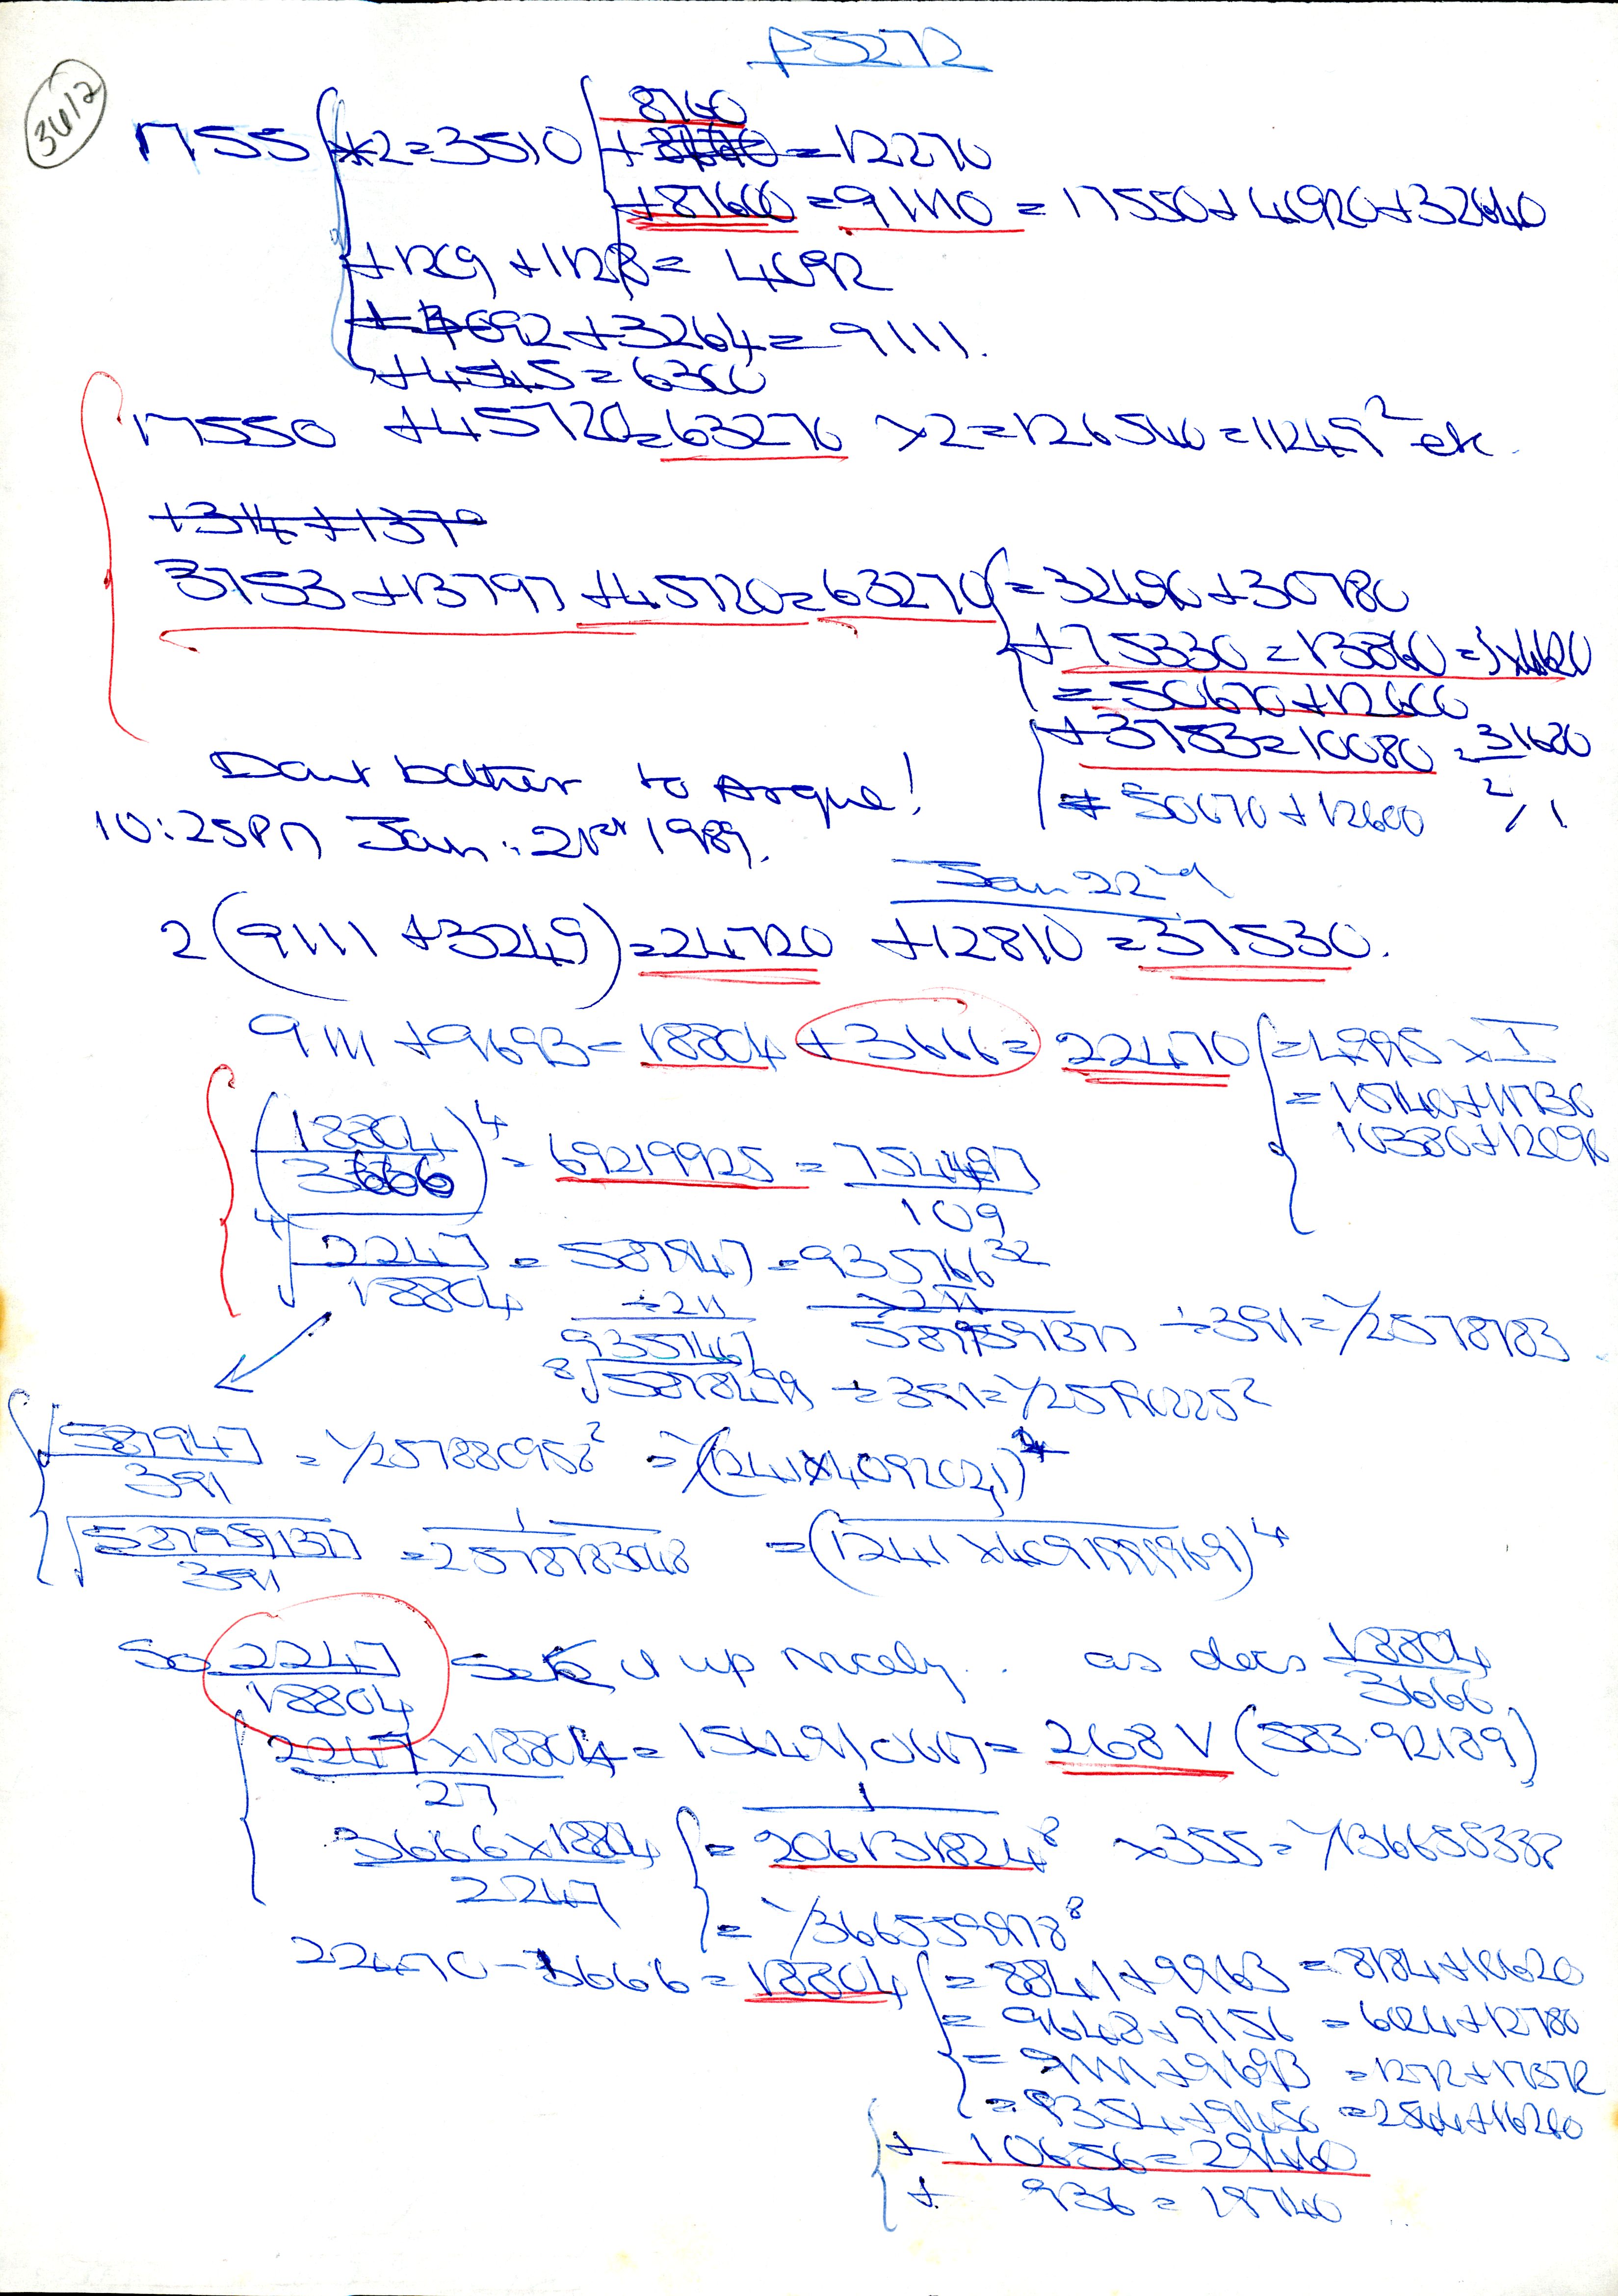 P5272
3612
8760
1755 ×2=3510 + 8760 =12270
+87600 =91110 = 17550+40920+32640
+1269 +1128 = 4692
+4092+3264=9111.
+4545=6300
17550 +45720=63270 ×2=126540=11249² etc.
+314+137°
3753+13797+45720=63270 =32490+30780
+75330=13860=3×4620
=50670+12600
+3753=10080 =31680
= 50670+12600
Dont bother to Argue!
10:25PM Jan: 21st 1989.
Jan 22nd
2(9111+3249)=24720 +12810=37530.
9111+9693=18804 +3666= 22470 =4995×I
=10740+11730
10380+12090
(18804/3666)⁴ = 69219925 = 754497/109
⁴√2247/18804 = 587947 =935766³²
÷211 ×211
9357467 5879591377 ÷391=1/2578783
⁸√5878499 ÷391=1/25790225²
√587947/391 = 1/257880958² =1/(1241×4092021)⁴
√5879591377/391 = 1/2578783048 =(1241×4091999969)⁴
So 2247/18804 Sets it up nicely.. as does 18804/3666
2247×18804/27 =1564910667= 268√(583.92189)
3666×18804/2247 = 1/206131824⁸ ×355=1/136655388
=1/366559978⁸
22470-3666=18804 =8841+9963 =8184+10620
=9648+9156 =6024+12780
=9111+9693 =1272+17532
=9354+9450 =2544+16260
+ 10656=29460
+ 936=19740